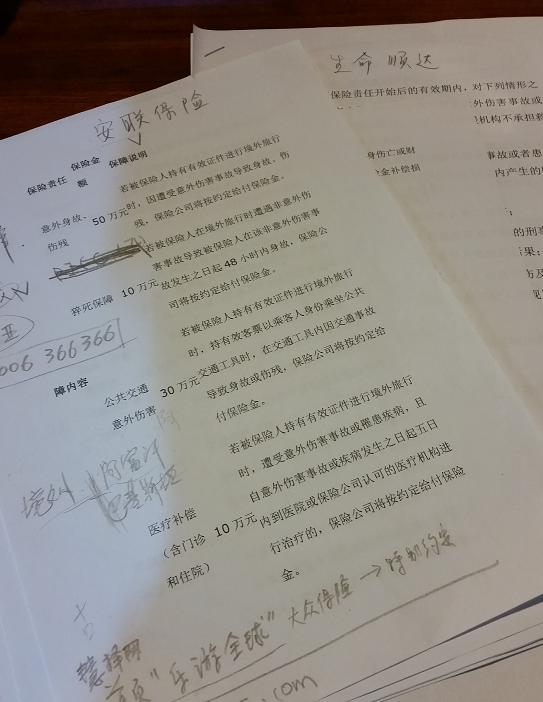 安联保险
保险责任 保险金额 保障说明
意外身故、伤残 50万元
若被保险人持有有效证件进行境外旅行
时，因遭受意外伤害事故导致身故、伤
残，保险公司将按约定给付保险金。
猝死保障 10万元
若被保险人在境外旅行时遭遇非意外伤
害事故导致被保险人在该非意外伤害事
故发生之日起48小时内身故，保险公
司将按约定给付保险金。
006 366366
障内容
公共交通意外伤害 30万元
若被保险人持有有效证件进行境外旅行
时，持有效客票以乘客人身份乘坐公共
交通工具时，在交通工具内因交通事故
导致身故或伤残，保险公司将按约定给
付保险金。
境外 阿富汗
巴基斯坦
医疗补偿（含门诊和住院） 10万元
若被保险人持有有效证件进行境外旅行
时，遭受意外伤害事故或罹患疾病，且
自意外伤害事故或疾病发生之日起五日
内到医院或保险公司认可的医疗机构进
行治疗的，保险公司将按约定给付保险
金。
慧择网
首页"乐游全球" 大众保险→特别约定
.com
生命 顺达
保险责任开始后的有效期内，对下列情形之
外伤害事故或
机构不承担
身伤亡或财
事故或者患
金补偿损
内产生的
的刑
果；